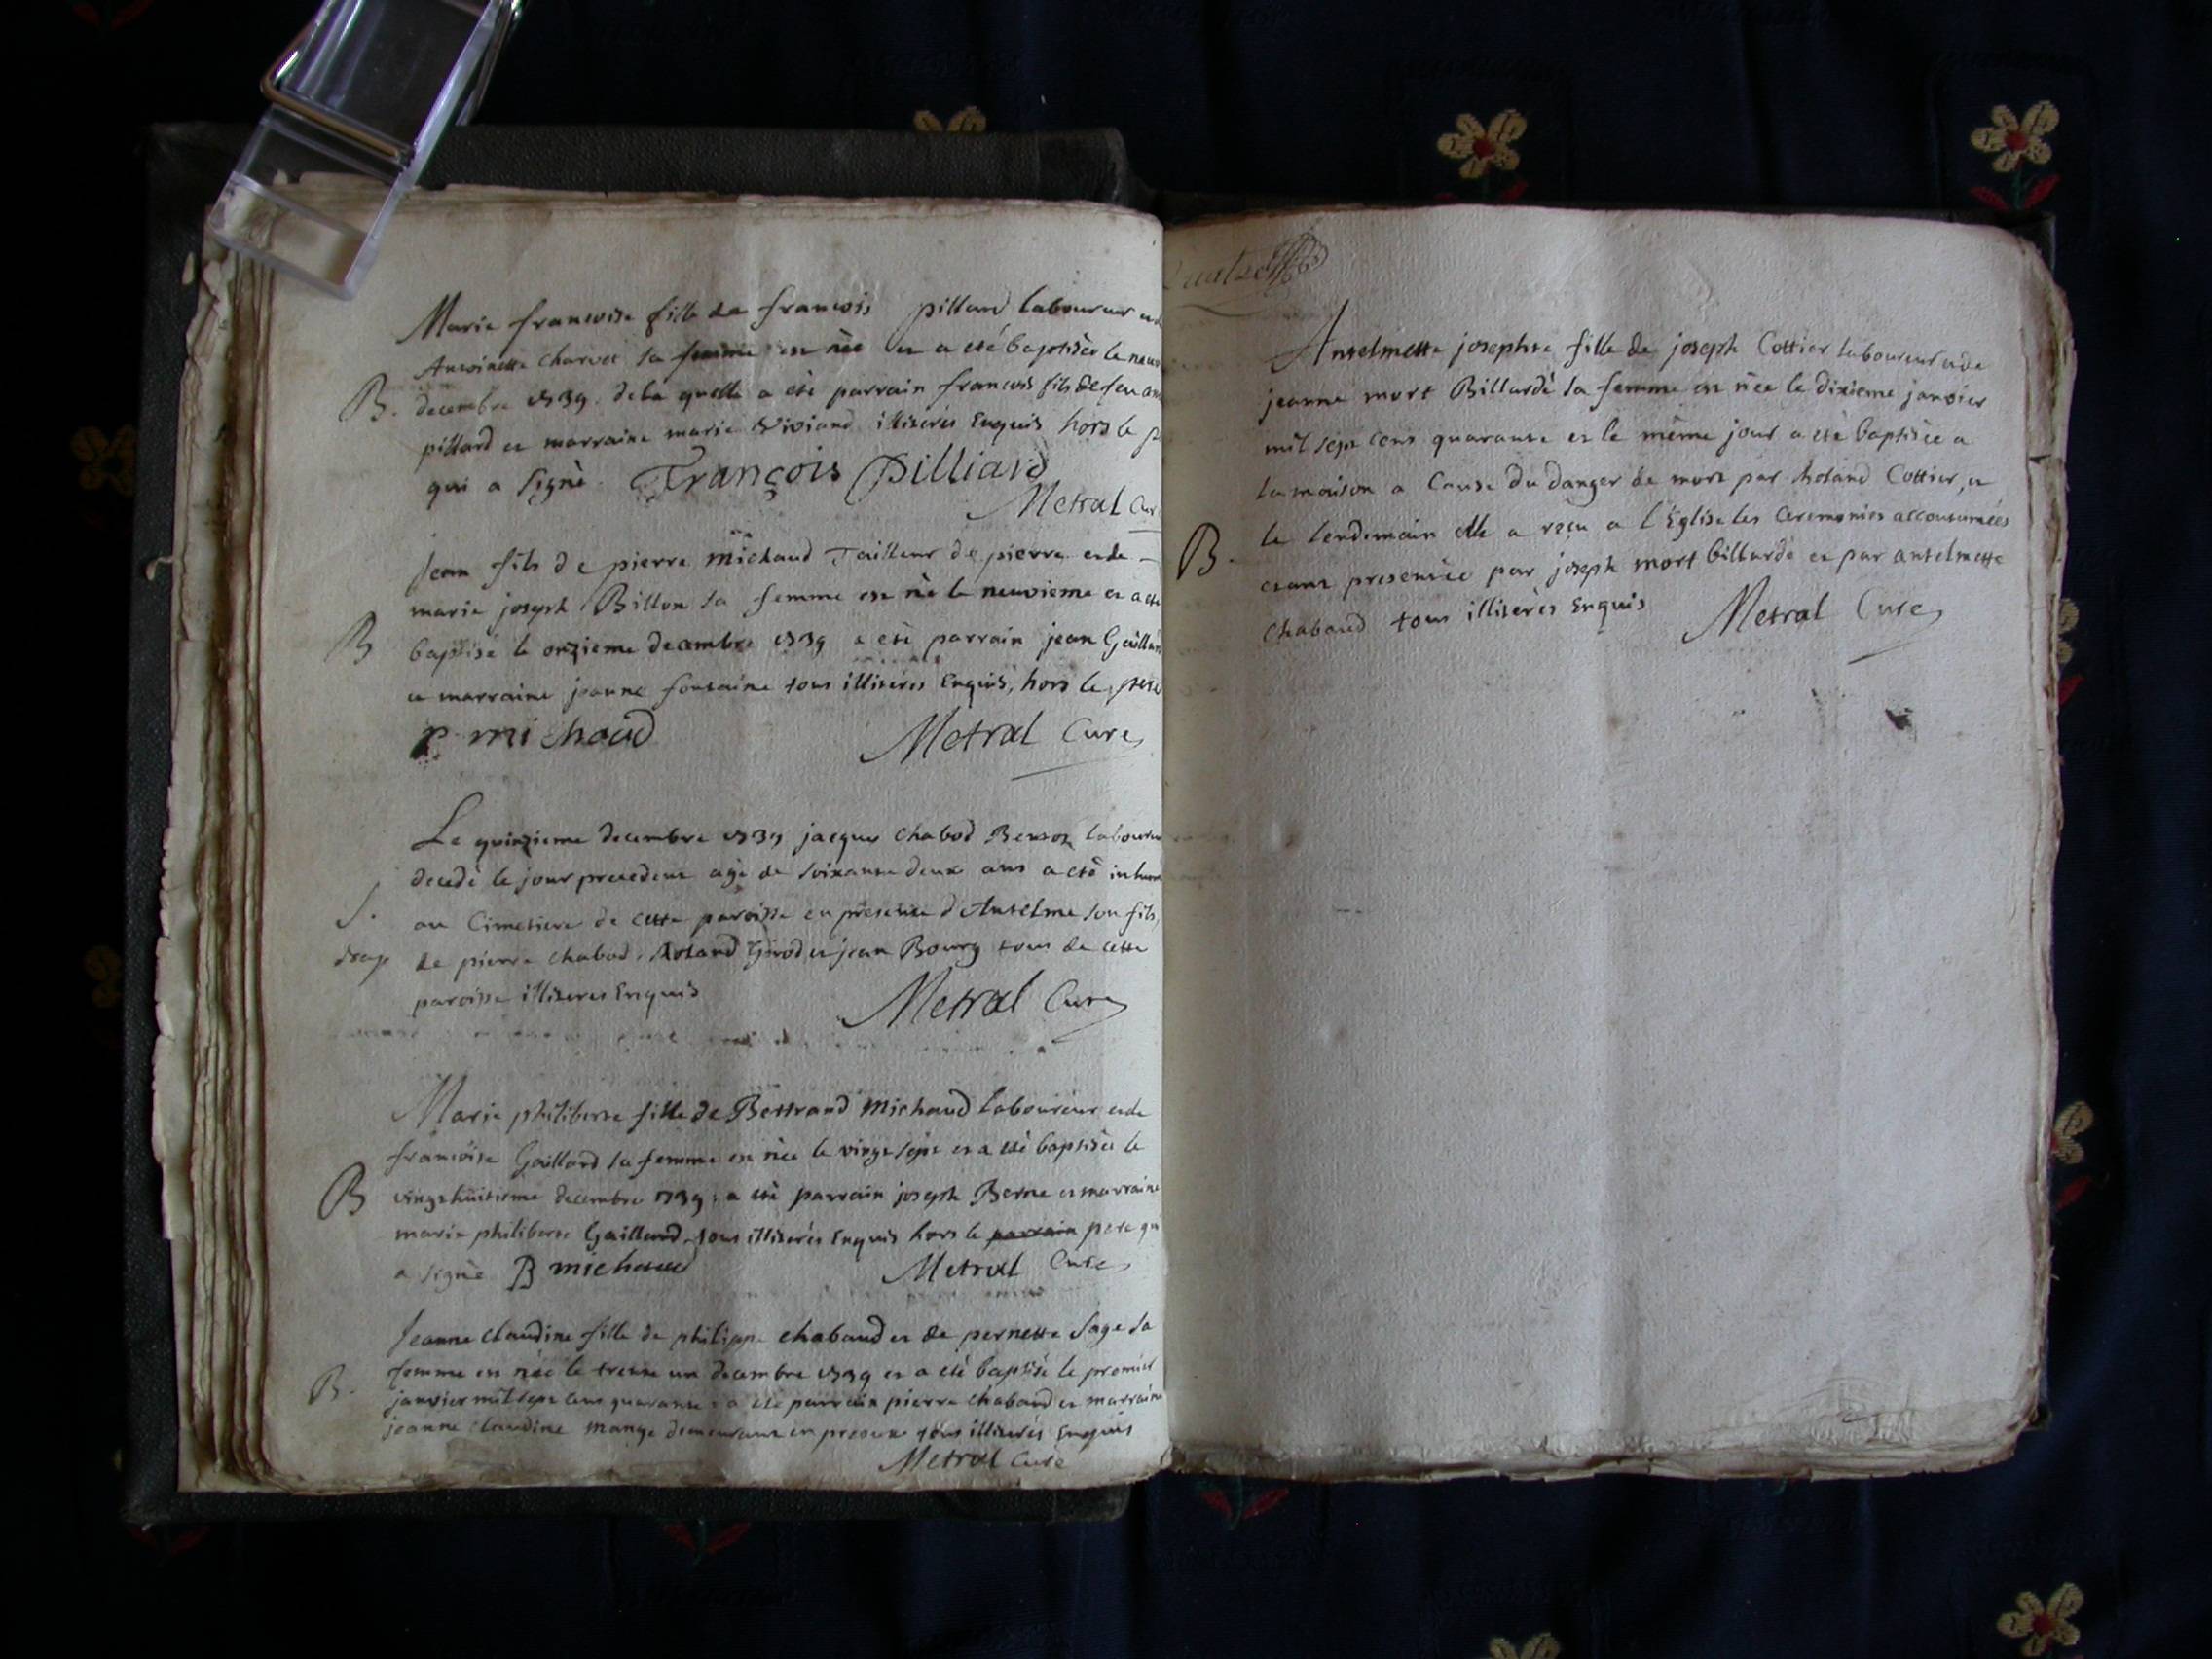 Marie francoise fille de francois pillard laboureur et de
Antoinette charvet sa femme est nèe et a eté baptisèe le neuv
B. decembre 1739. de la quelle a eté parrain francois fils de feu an
pillard et marraine marie Viviand illiterés Enquis hors le p
qui a signè. François Pilliard
Metral Cur
Jean fils de pierre michaud Tailleur de pierre et de
marie joseph Billon sa femme est nè le neuvieme et a eté
B baptisé le onzieme decembre 1739 a eté parrain jean Gaillard
et marraine jeanne fontaine tous illiterés Enquis, hors le pere
P michaud Metral Curé
Le quinzieme decembre 1739 jacques chabod laboureur
decedè le jour precedent agè de soixante deux ans a eté inhum
S. au Cimetiere de cette paroisse en presence d'Antelme son fils,
drap de pierre chabod, Roland Girod et jean Bourg tous de cette
paroisse illiteres Enquis
Metral Curé
Marie philiberte fille de Bertrand Michaud laboureur et de
francoise Gaillard sa femme est nèe le vingt sept et a eté baptisèe le
B vingt huitieme decembre 1739, a eté parrain joseph Berne et marraine
marie philiberte Gaillard, tous illiterés Enquis hors le parrain pere qui
a signè B michaud Metral Curé
Jeanne claudine fille de philippe chabaud et de pernette Sage sa
femme est nèe le trente un decembre 1739 et a eté baptisé le premier
B. janvier mil sept cens quarante, a eté parrain pierre chabaud et marraine
jeanne claudine mange demeurant en tous illiterés Enquis
Metral Curé
Antelmette josephte fille de joseph Cottier laboureur et de
jeanne mort Billardè sa femme est nèe le dixieme janvier
mil sept cens quarante et le mème jour a eté baptisèe a
la maison a Cause du danger de mort par Roland Cottier, et
le lendemain elle a reçu a l'Église les Ceremonies accoutumées
B. etant presentée par joseph mort billardè et par antelmette
chabaud tous illiterès Enquis Metral Curé